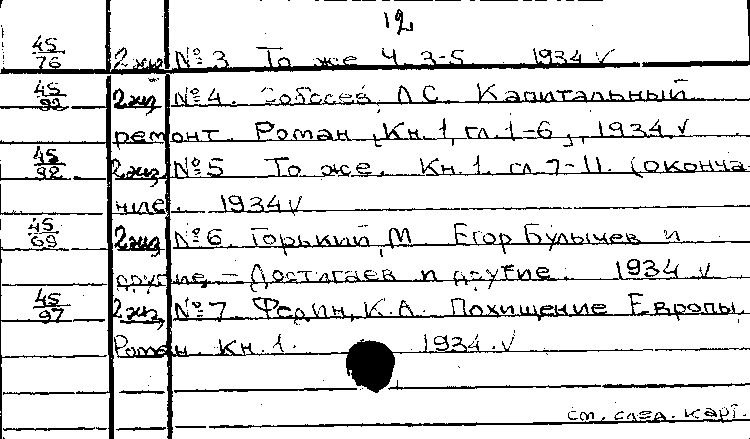 12
45/76 2 жиз №3 То же Ч. 3-5 1934 ✓
45/92 2 жиз №4. Соболев, Л.С. Капитальный
ремонт. Роман, Кн. 1, гл. 1-6, 1934. ✓
45/92 2 жиз №5 То же. Кн. 1. гл. 7-11. (оконча-
ние. 1934 ✓
45/69 2 жиз №6. Горький, М. Егор Булычев и
другие, – Достигаев и другие. 1934 ✓
45/97 2 жиз, №7. Федин, К.А. Похищение Европы,
Роман. Кн. 1. 1934. ✓
см. след. карт.